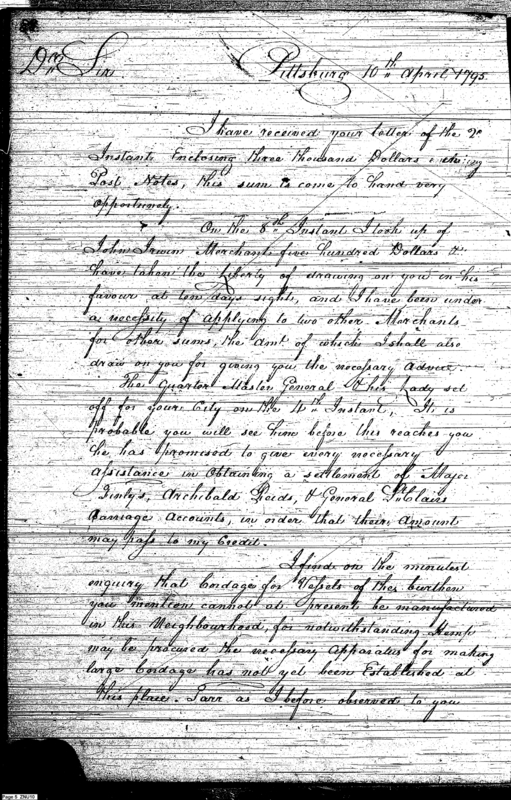 Dr Sir Pittsburg 10th April 1795
I have received your letter of the 2d
Instant, Enclosing three thousand Dollars in
Post Notes, this sum is come to hand very
opportunely.
On the 8th Instant I took up of
John Irwin Merchant five hundred Dollars &
have taken the Liberty of drawing on you in his
favour at ten days sight, and I have been under
a necessity of applying to two other Merchants
for other sums, the Amt of which I shall also
draw on you for giving you the necessary Advice.
The Quarter Master General & his Lady set
off for your City on the 4th Instant, It is
probable you will see him before this reaches you
he has promised to give every necessary
assistance in Obtaining a settlement of Major
Archibald Reids, & General St Clairs
Carriage Accounts, in order that their Amount
may pass to my Credit.
I find on the minutest
enquiry that Cordage for Vessels of the burthen
you mention cannot at present be manufactured
in this Neighbourhood, for notwithstanding Hemp
may be procured the necessary Apparatus for making
large Cordage has not yet been Established at
this place. Tarr as I before observed to you
Page 5 ZNU10